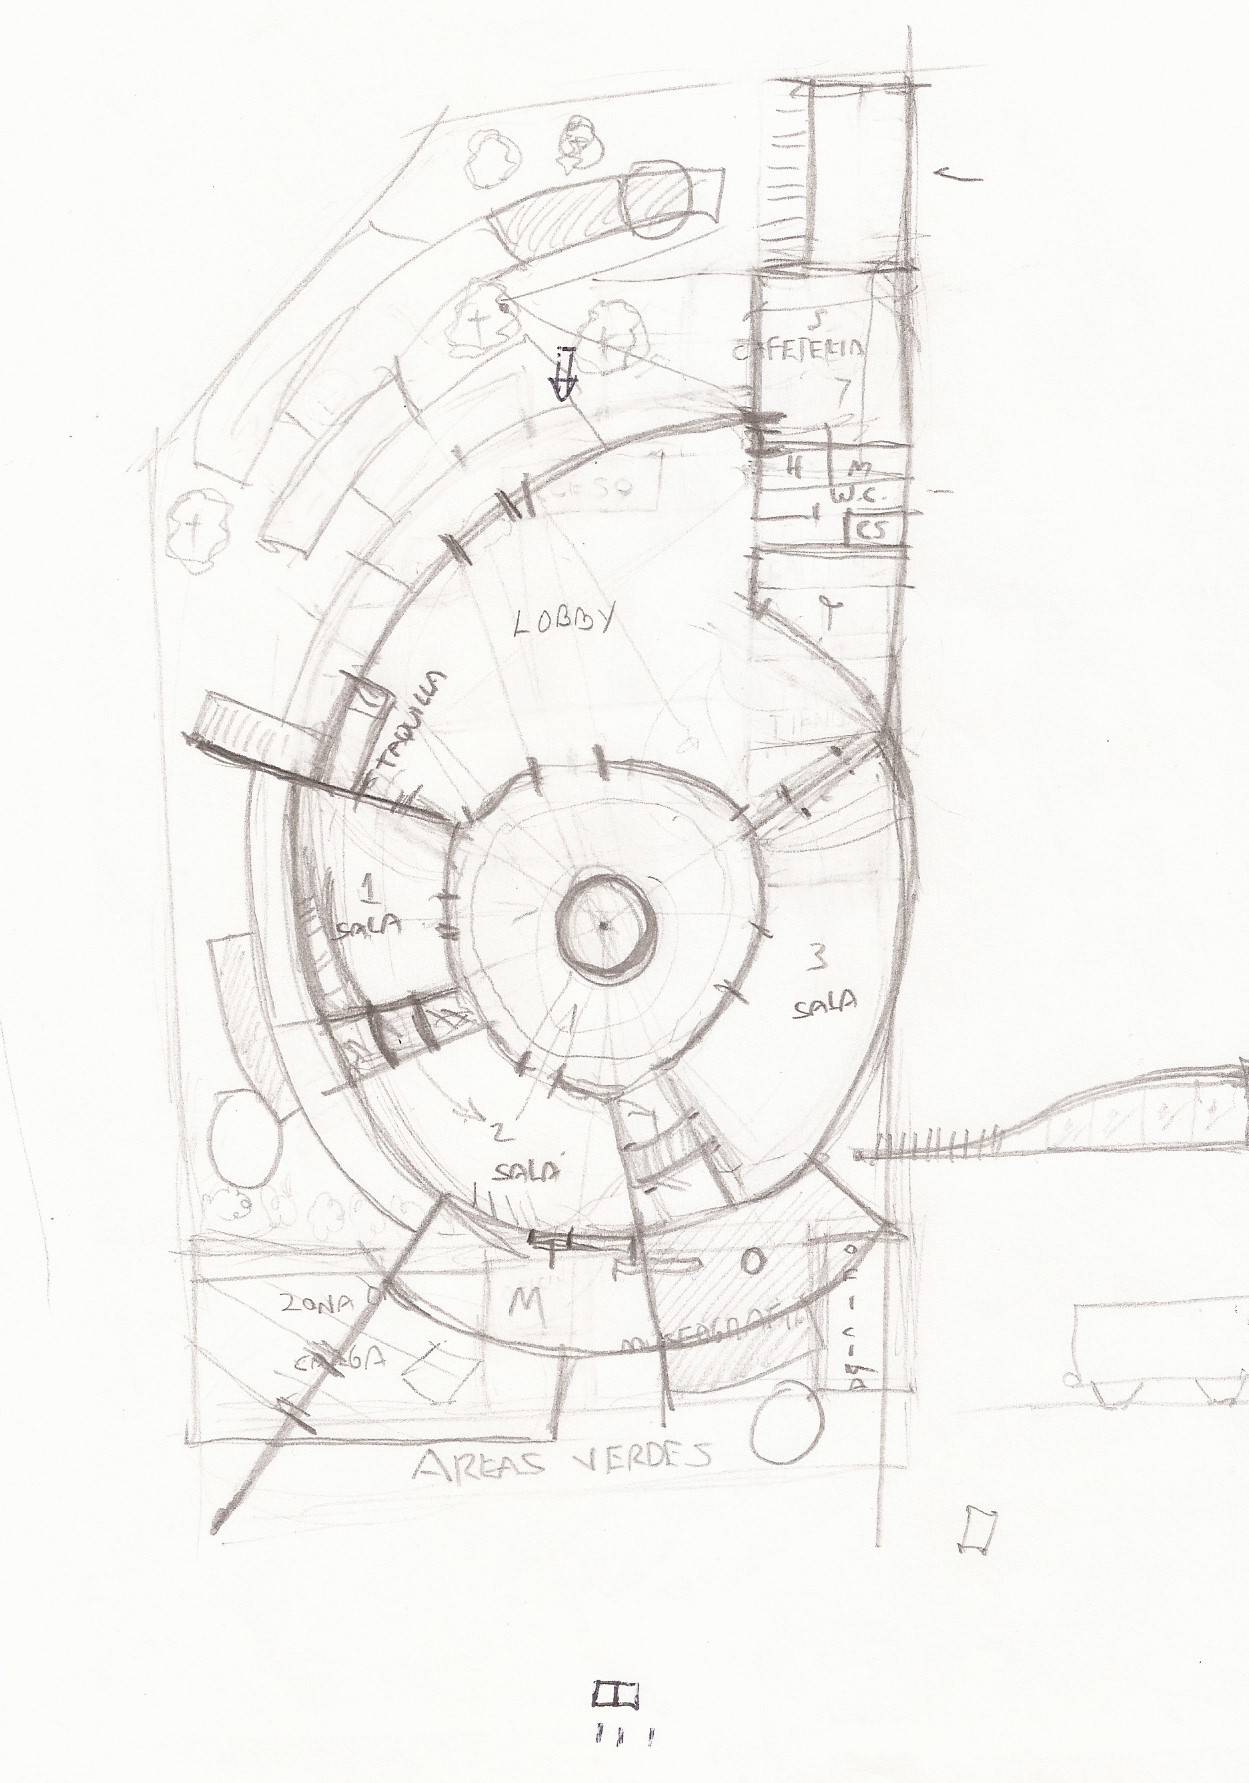 CAFETERIA
H M
W.C.
CS
LOBBY
TAQUILLA
1
SALA
3
SALA
2
SALA
ZONA
CARGA
M
MUSEOGRAFIA
OFICINA
AREAS VERDES